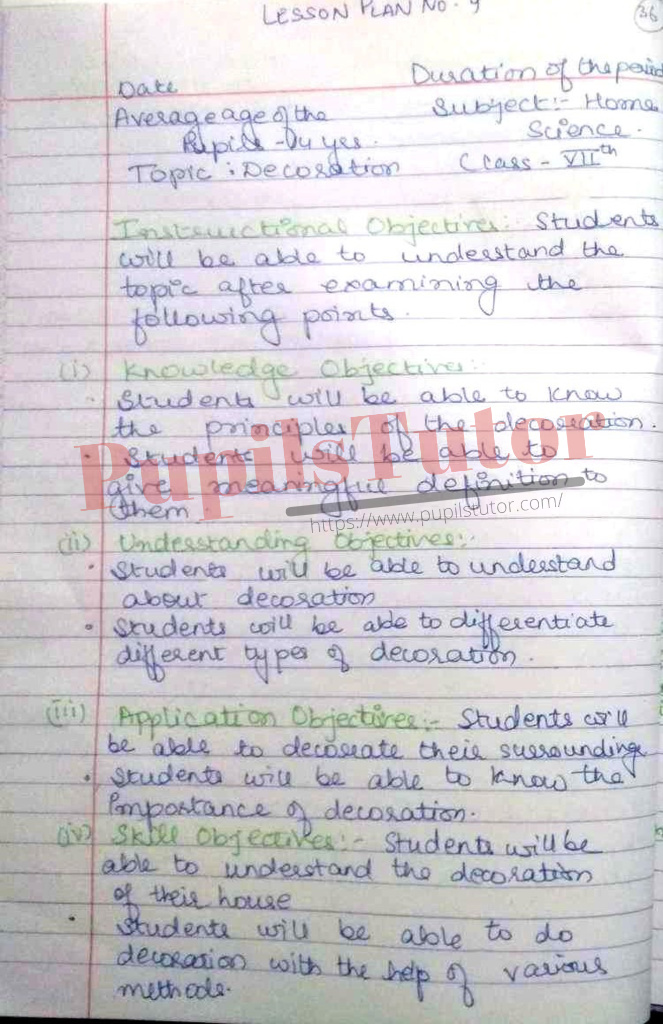 LESSON PLAN NO. 9
36
Date
Duration of the period
Average age of the
Subject:- Home
Pupils - 14 yrs.
Science.
Topic : Decoration
Class - VIIth
Instructional Objectives:- Students
will be able to understand the
topic after examining the
following points.
(i) Knowledge Objective:-
• Students will be able to know
the principles of the decoration.
• Students will be able to
give meaningful definition to
them.
PupilsTutor
https://www.pupilstutor.com/
(ii) Understanding Objectives:-
• Students will be able to understand
about decoration
• Students will be able to differentiate
different types of decoration.
(iii) Application Objectives:- Students will
be able to decorate their surroundings
• Students will be able to know the
Importance of decoration.
(iv) Skill Objectives:- Students will be
able to understand the decoration
of their house
• Students will be able to do
decoration with the help of various
methods.